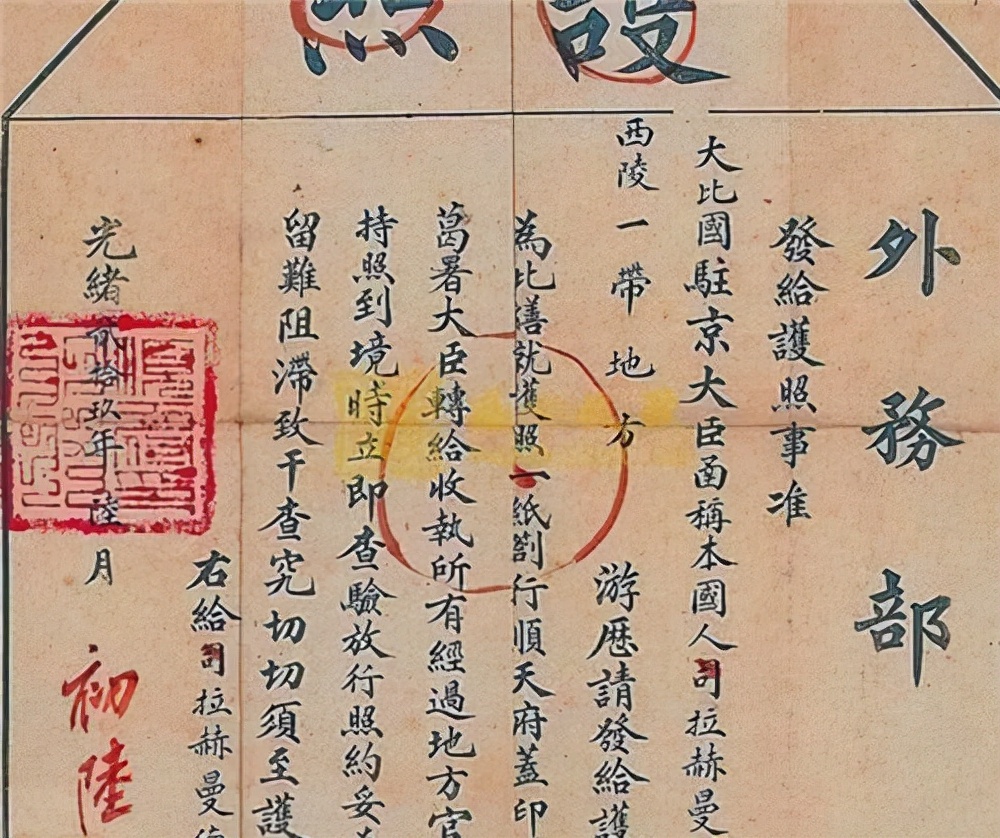 護照
外務部
發給護照事准
大比國駐京大臣函稱本國人司拉赫曼
西陵一帶地方游歷請發給護
為此繕就護照一紙劄行順天府蓋印
葛署大臣轉給收執所有經過地方官
持照到境時立即查驗放行照約妥
留難阻滯致干查究切切須至護
右給司拉赫曼德
光緒貳拾玖年陸月初陸